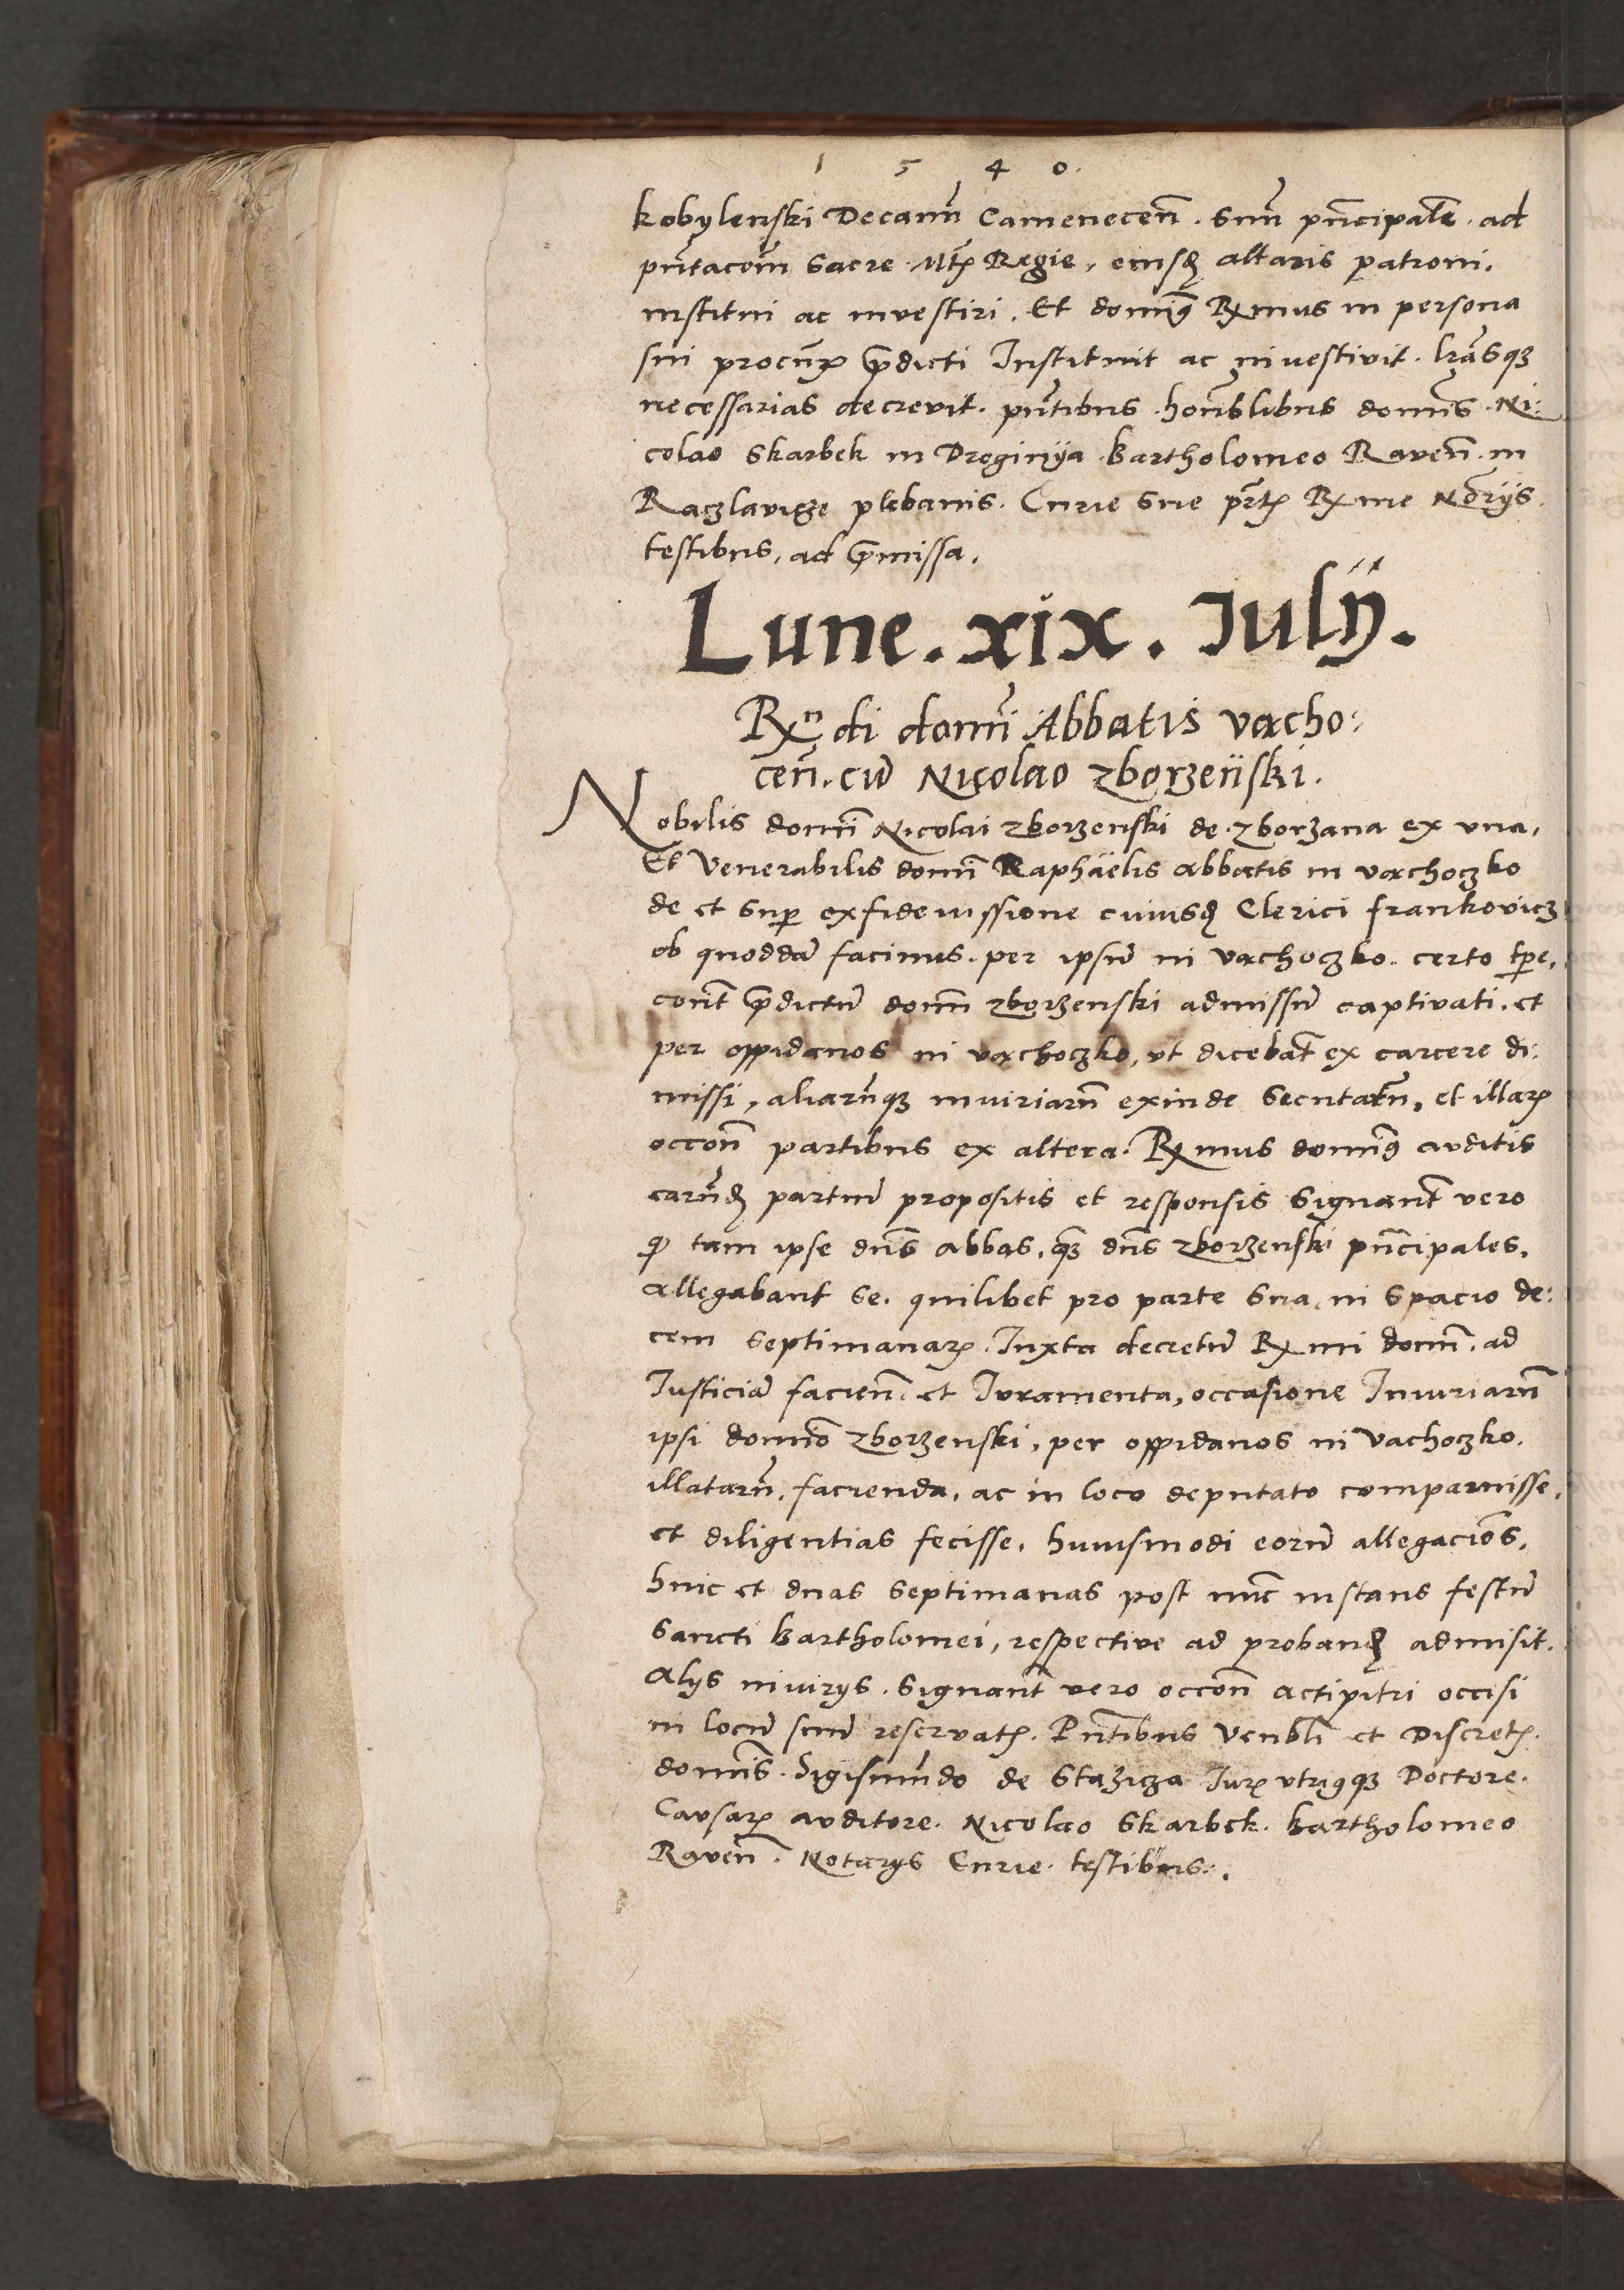 1 5 4 0.
kobylenski Decanũ Camenecen̄. suũ pñcipalẽ. ad
pñtacom̃ Sacre Mtȩ Regie, eiusdȩ altaris patroni.
institui ac investiri. Et domiñꝰ Rx̃mus in persona
sui procur̃ p̃dicti Instituit ac investivit. lr̃asqꝫ
necessarias decrevit. pñtibus hon̄blibus domĩs Ni:
colao Skarbek in Droginya Bartholomeo Raven̄. in
Raczlavicze plebanis. Curie sue pr̃tȩ Rx̃me Notrijs
testibus, ad p̃missa.
Lune . xix . Julij.
Rxn̄di domĩ Abbatis vacho:
cen̄. cũ Nicolao zborzeński.
Nobilis domĩ Nicolai zborzenski de zborzana ex una,
Et Venerabilis domĩ Raphäelis abbatis in vachoczko
de et sup exfideiussione cuiusdȩ Clerici frankovicz
ob quoddã facinus. per ipsũ in vachoczko. certo tp̃e,
cont̃ p̃dictũ domũ zborzenski admissũ captivati. et
per oppidanos in vachoczko, ut dicebat̃ ex carcere di:
missi, aliarũqꝫ iniuriarũ exinde secutarũ, et illarꝫ
occon̄ partibus ex altera. Rx̃mus domiñꝰ auditis
earũdȩ partiũ propositis et responsis signant̃ vero
qꝫ tam ipse dñs abbas, qꝫ dñs zborzenski pñcipales,
allegabant se. quilibet pro parte sua, in spacio de:
cem septimanarꝫ. Juxta decretũ Rx̃mi domĩ. ad
Justiciã facien̄. et Juramenta, occasione Iniuriarũ
ipsi domĩo zborzenski, per oppidanos in vachoczko.
illatarũ, facienda, ac in loco deputato comparuisse,
et diligentias fecisse, huiusmodi eorũ allegaciões,
hinc et duas septimanas post nũc instans festũ
Sancti Bartholomei, respective ad probandȩ admisit.
Alijs iniurijs. signant̃ vero occon̄ actipitri occisi
in locũ suũ reservatȩ. Pñtibus Venbli et Discretȩ.
domĩs. Sigismũdo de Stazicza Jurȩ utriqꝫ Doctore.
Causarꝫ auditore. Nicolao Skarbek. Bartholomeo
Raven̄. Notarijs Curie testibus.